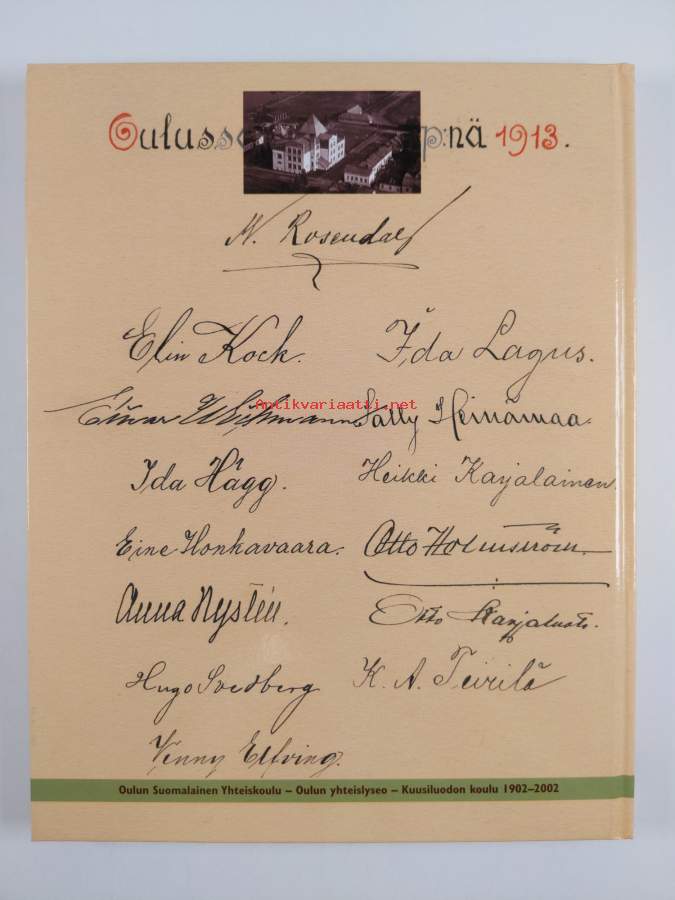 Oulussa p:nä 1913.
N. Rosendal
Elin Kock. Ida Lagus.
Antikvariaatti.net
Sally Heinämaa.
Ida Hägg. Heikki Karjalainen.
Eine Honkavaara. Otto Holmström.
Anna Nystén. Otto Karjaluoto.
Hugo Svedberg K. A. Teirilä
Venny Elfving.
Oulun Suomalainen Yhteiskoulu – Oulun yhteislyseo – Kuusiluodon koulu 1902–2002